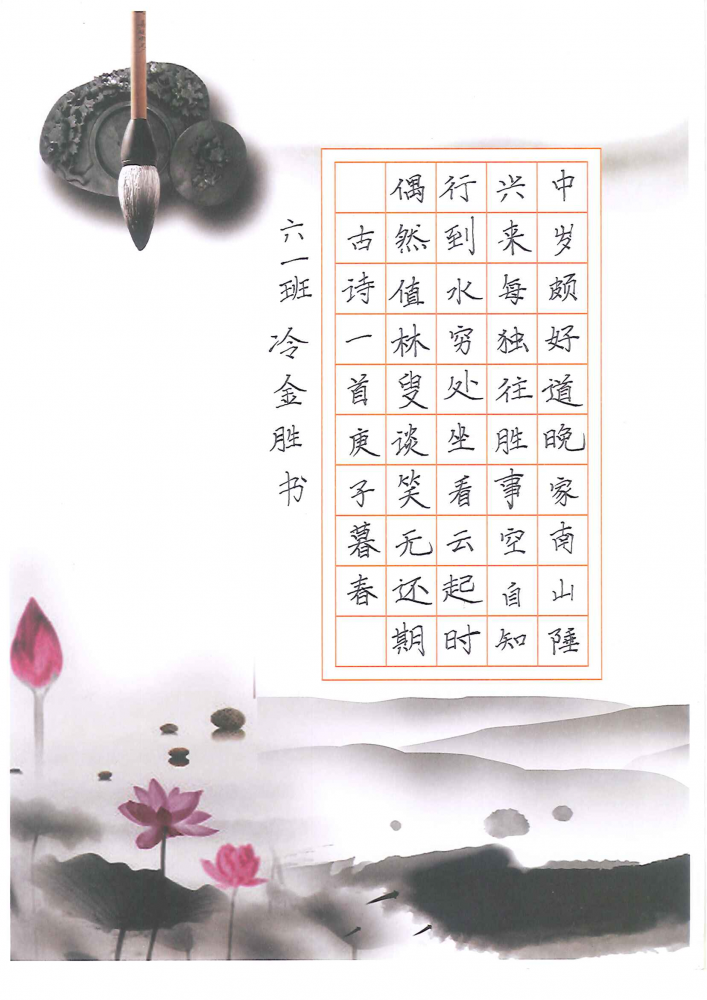 中岁颇好道晚家南山陲
兴来每独往胜事空自知
行到水穷处坐看云起时
偶然值林叟谈笑无还期
古诗一首庚子暮春
六一班冷金胜书